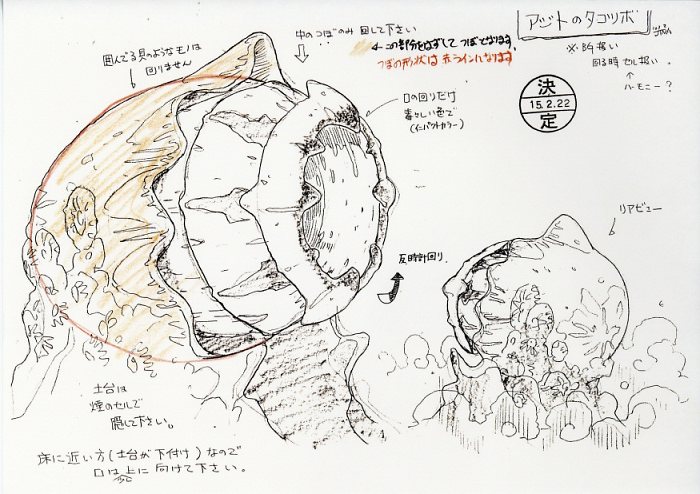 アジトのタコツボ
※BG扱い
回る時セル扱い
↑
ハーモニー?
決
15.2.22
定
中のつぼのみ 回して下さい
←この部分をはずして つぼになります。
つぼの形状は赤ラインになります
囲んでる貝のようなモノは
回りません
口の回りだけ
毒々しい色で
(インパクトカラー)
リアビュー
反時計回り
土台は
煙のセルで
隠して下さい。
床に近い方(土台が下付け)なので
口は上に向けて下さい。